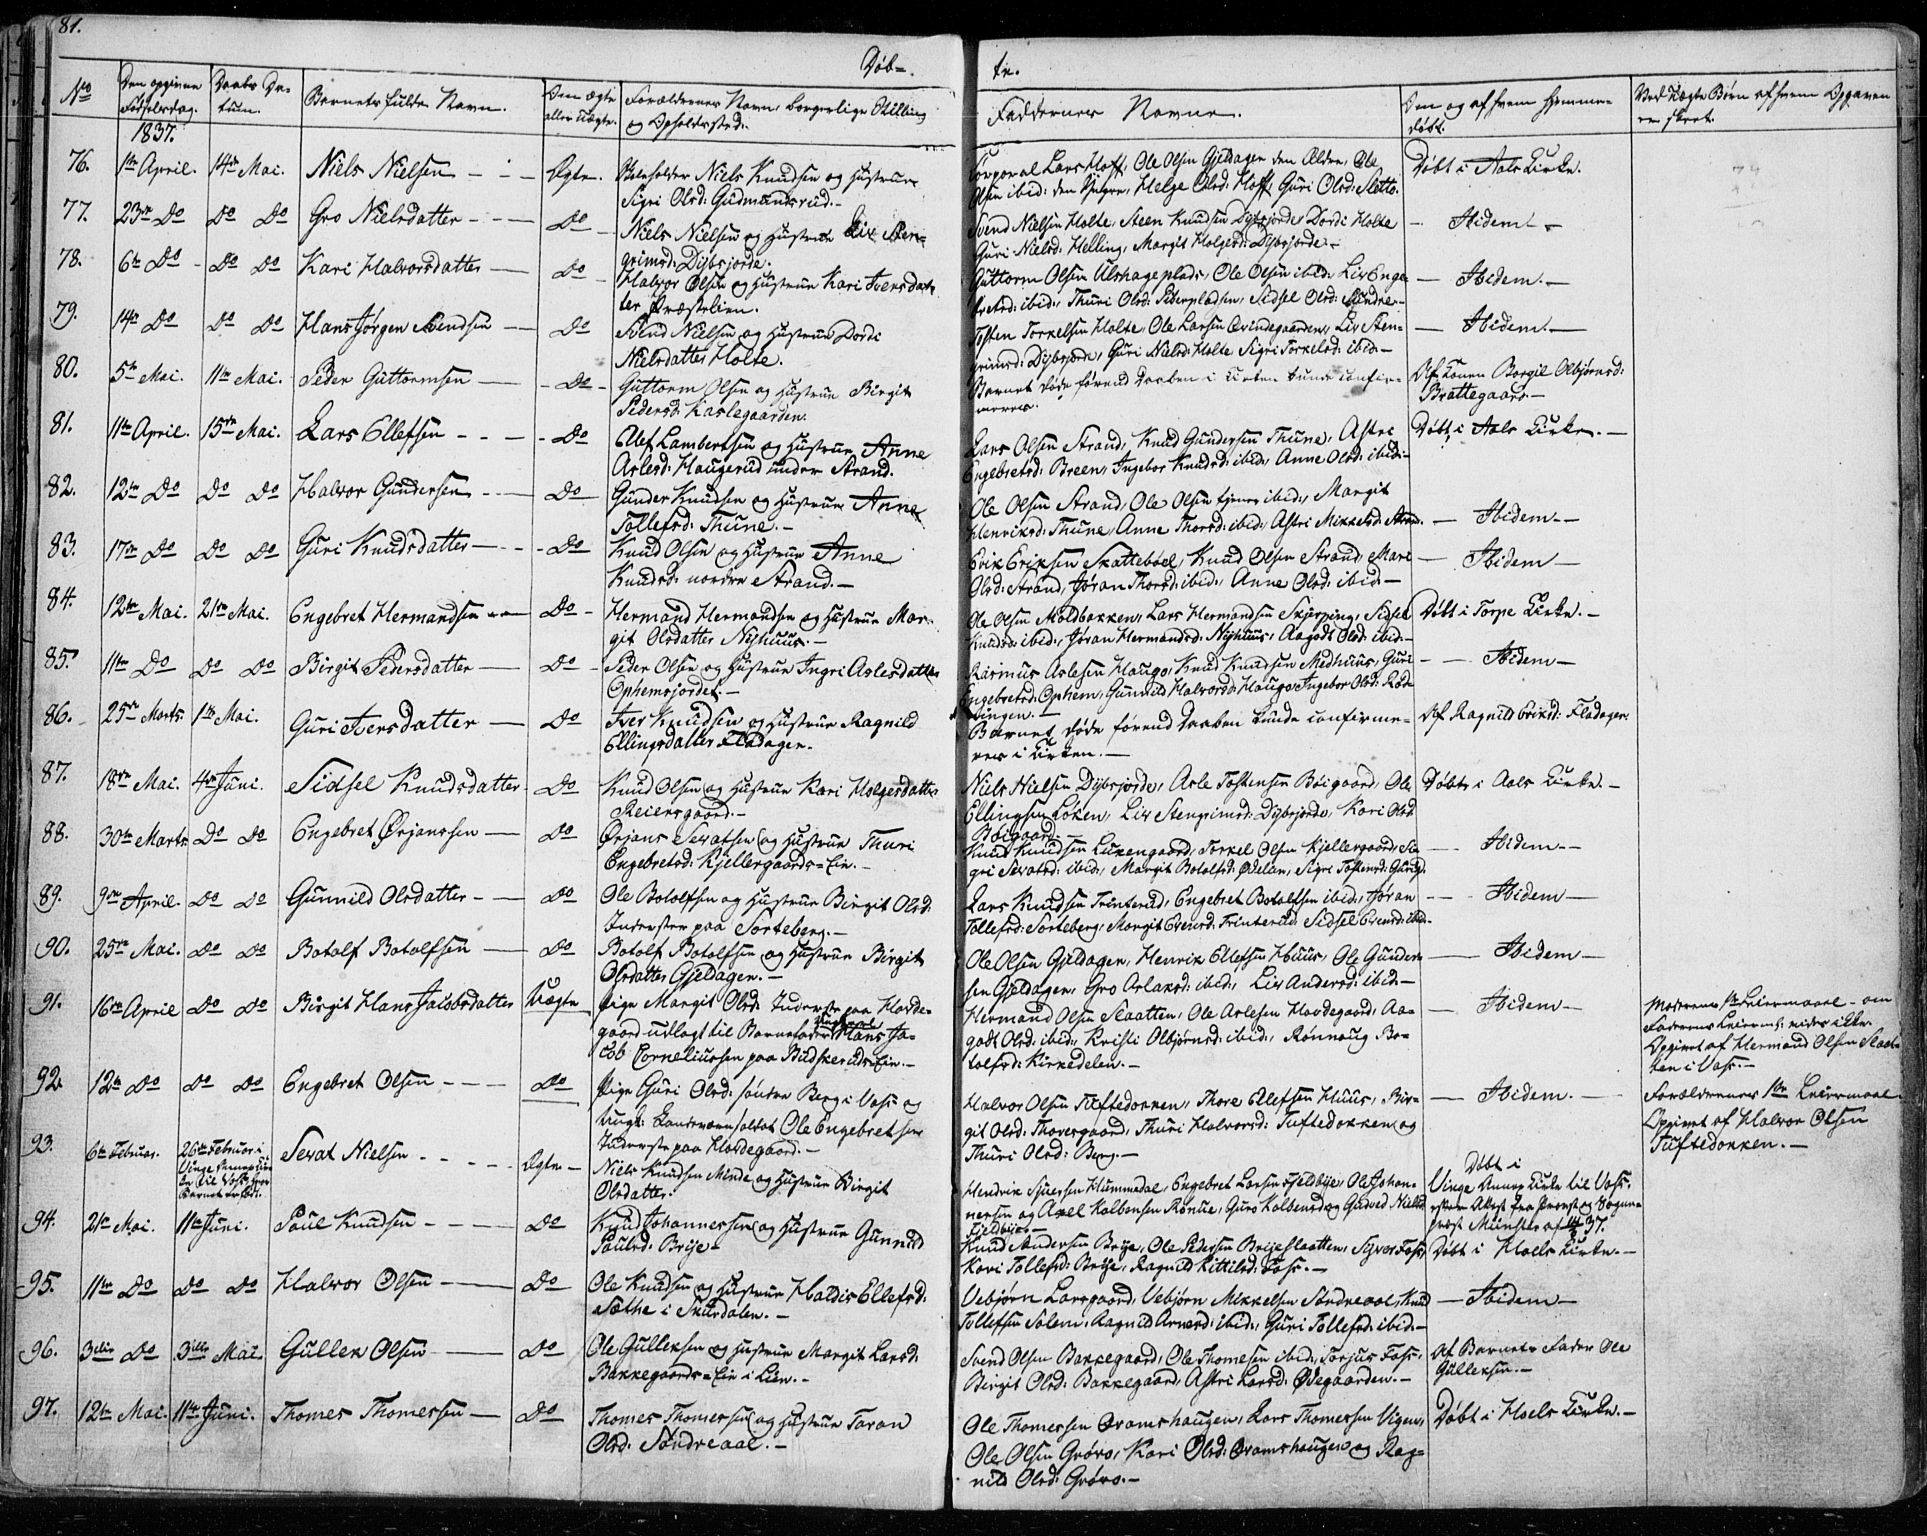 81.
Døb-
te.
No
Den opgivne
Fødselsdag.
Daabs Da-
tum.
Barnets fulde Navn.
Om ægte
eller Uægte.
Forældrenes Navn, borgerlige Stilling
og Opholdssted.
Faddernes Navne.
Om og af hvem hjemme-
døbt.
Ved Uægte Børn af hvem Opgaven
er skeet.
1837.
76. 1ste April. 14de Mai. Niels Nielsen Ægte. Niels Knudsen og Hustrue
Sigri Olsd: Gudmundsrud.
Lars Hoff, Ole Olsen Gjeldagen den Ældre, Ole
Olsen ibid: den Yngre, Helge Olsd: Hoff, Guri Olsd: Sletto.
Døbt i Aals Kirke.
77. 23de Do Do Do Gro Nielsdatter Do Niels Nielsen og Hustrue Liv Sten-
grimsd: Dybsjorde.
Svend Nielsen Holte, Steen Knudsen Dybsjorde, Dordi Holte
Guri Nielsd: Helling, Margit Holgersd: Dybsjorde.
Ibidem.
78. 6te Do Do Do Kari Halvorsdatter Do Halvor Olsen og Hustrue Kari Iversdat-
ter Præstelien.
Guttorm Olsen Ulshageplads, Ole Olsen ibid: Liv Enge-
bretsd: ibid: Thuri Olsd: Sidsel Olsd: Søndre
Ibidem.
79. 14de Do Do Do Hans Jørgen Svendsen Do Svend Nielsen og Hustrue Dordi
Nielsdatter Holte.
Tosten Torkelsen Holte, Ole Larsen Qvindegaarden, Liv Sten-
grimsd: Dybsjorde, Guri Nielsd: Holte, Sigri Torkelsd: ibid:
Ibidem.
80. 5te Mai. 11te Mai. Peder Guttormsen Do Guttorm Olsen og Hustrue Birgit
Pedersd: Karlegaarden.
Barnet døde førend Daaben i Kirken kunde confir-
meres.
Af Konen Borgil Olbjørnsd:
Brattegaard
81. 11te April. 15de Mai. Lars Ellefsen Do Ellef Lambertsen og Hustrue Anne
Aslesd: Haugerud under Strand.
Lars Olsen Strand, Knud Gundersen Thune, Astri
Engebretsd: Breen, Ingebor Knudsd: ibid: Anne Olsd: ibid:
Døbt i Aals Kirke.
82. 12te Do Do Do Halvor Gundersen Do Gunder Knudsen og Hustrue Anne
Tollefsd: Thune.
Ole Olsen Strand, Ole Olsen tjener ibid:, Margit
Henriksd: Thune, Anne Thorsd: ibid:, Astri Mikkelsd: Strand.
Ibidem.
83. 17de Do Do Do Guri Knudsdatter Do Knud Olsen og Hustrue Anne
Knudsd: nordre Strand.
Erik Eriksen Skattebøel, Knud Olsen Strand, Mari
Olsd: Strand, Jøran Thorsd: ibid:, Anne Olsd: ibid:
Ibidem
84. 12te Mai. 21de Mai. Engebret Hermandsen Do Hermand Hermandsen og Hustrue Mar-
git Olsdatter Nyhuus.
Ole Olsen Moldbakken, Lars Hermandsen Skjerping, Sidsel
Knudsd: ibid:, Jøran Hermandsd: Nyhuus, Aagodt Olsd: ibid:
Døbt i Torpe Kirke.
85. 11te Do Do Do Birgit Pedersdatter Do Peder Olsen og Hustrue Ingri Aslesdatter
Ophemsjordet.
Rasmus Aslesen Hauge, Knud Knudsen Medhuus, Guri
Engebretsd: Ophem, Gunnild Halvorsd: Hauge, Ingebor Olsd: Rød-
ningen.
Ibidem
86. 25de Marts. 1ste Mai. Guri Iversdatter Do Iver Knudsen og Hustrue Ragnild
Ellingsdatter Fladagen.
Barnet døde førend Daaben kunde confirme-
res i Kirken.
Af Ragnild Eriksd: Fladagen.
87. 18de Mai. 4de Juni. Sidsel Knudsdatter Do Knud Olsen og Hustrue Kari Holgersdatter
Reiersgaard.
Niels Nielsen Dybsjorde, Asle Tostensen Bøigaard, Ole
Ellingsen Løken, Liv Stengrimsd: Dybsjorde, Kari Olsd:
Bøigaard.
Døbt i Aals Kirke.
88. 30te Marts Do Do Engebret Ørjanssen Do Ørjans Sevatsen og Hustrue Thuri
Engebretsd: Kjellergaards-Eie.
Knud Knudsen Lykengaard, Torkel Olsen Kjellergaard, Si-
gri Sevatsd: ibid:, Margit Botolfsd: Ødelan, Sigri Tostensd:
Ibidem
89. 9de April. Do Do Gunnild Olsdatter Do Ole Botolfsen og Hustrue Birgit Olsd:
Inderster paa Sorteberg.
Lars Knudsen Trinterud, Engebret Botolfsen ibid:, Jøran
Tollefsd: Sorteberg, Margit Evensd: Trinterud, Sidsel Evensd: ibid:
Ibidem
90. 25de Mai. Do Do Botolf Botolfsen Do Botolf Botolfsen og Hustrue Birgit
Olsdatter Gjeldagen.
Ole Olsen Gjeldagen, Henrik Ellefsen Huus, Ole Gunder-
sen Gjeldagen, Gro Aslaksd: ibid:, Liv Andersd: ibid:
Ibidem
91. 16de April Do Do Birgit Hans Jacobsdatter Uægte Pige Margit Olsd: Inderste paa Hovde-
gaard udlagt til Barnefader Hans Ja-
cob Corneliussen paa Buskeruds-Eie.
Hermand Olsen Slaatten, Ole Aslesen Hovdegaard, Aa-
godt Olsd: ibid:, Kristi Olbjørnsd: ibid:, Rønnaug Bo-
tolfsd: Kirkedelen.
Ibidem
Moderens 1ste Leiermaal - om
Faderens Leierm: vides ikke.
Opgivet af Hermand Olsen Slaat-
ten i Vats.
92. 12te Do Do Do Engebret Olsen Do Pige Guri Olsd: søndre Berg i Vats og
Ungk: Landeværnsoldat Ole Engebretsen
Inderste paa Hovdegaard.
Halvor Olsen Tuftedokken, Thore Ellefsen Huus, Bir-
git Olsd: Thoresgaard, Thuri Halvorsd: Tuftedokken og
Thuri Olsd: Berg.
Ibidem.
Forældrenes 1ste Leiermaal
Opgivet af Halvor Olsen
Tuftedokken.
93. 6te Februar. 26de Februar i
Vinge Annex Kir-
ke til Voss hvor
Barnet er født.
Sevat Nielsen Ægte Niels Knudsen Minde og Hustrue Birgit
Olsdatter.
Hendrik Sjursen Hummedal, Engebret Larsen Fjeldbye, Ole Johan-
nessen og Axel Kolbensen Rønne, Guro Kolbensd: og Gunved Nielsd:
Fjeldbye.
Døbt i
Vinge Annex Kirke til Voss.
efter Attest fra Provst og Sogne-
præst Münster af 37.
94. 21de Mai. 11te Juni. Paul Knudsen Do Knud Johannessen og Hustrue Gunnild
Paulsd: Brye
Knud Andersen Brye, Ole Pedersen Bryeslaatten, Syver Foss,
Kari Tollefsd: Brye, Ragnild Kittilsd: Foss.
Døbt i Hoels Kirke.
95. 11te Do Do Do Halvor Olsen Do Ole Knudsen og Hustrue Haldis Ellefsd:
Sæthe i Skurdalen.
Vebjørn Larsgaard, Vebjørn Mikkelsen Søndreaal, Knud
Tollefsen Solem, Ragnild Arnesd: ibid:, Guri Tollefsd: ibid:
Ibidem
96. 3die Do 3die Mai Gullek Olsen Do Ole Gulleksen og Hustrue Margit Larsd:
Bakkegaards-Eie i Lien.
Svend Olsen Bakkegaard, Ole Thomesen ibid:, Torjus Foss,
Birgit Olsd: Bakkegaard, Astri Larsd: Ødegaarden.
Af Barnets Fader Ole
Gulleksen.
97. 12te Mai. 11te Juni. Thomes Thomessen Do Thomes Thomessen og Hustrue Taran
Olsd: Søndreaal.
Ole Thomessen Bramshaugen, Lars Thomessen Vigen,
Ole Olsen Grøvo, Kari Olsd: Bramshaugen og Rag-
nild Olsd: Grøvo.
Døbt i Hoels Kirke.